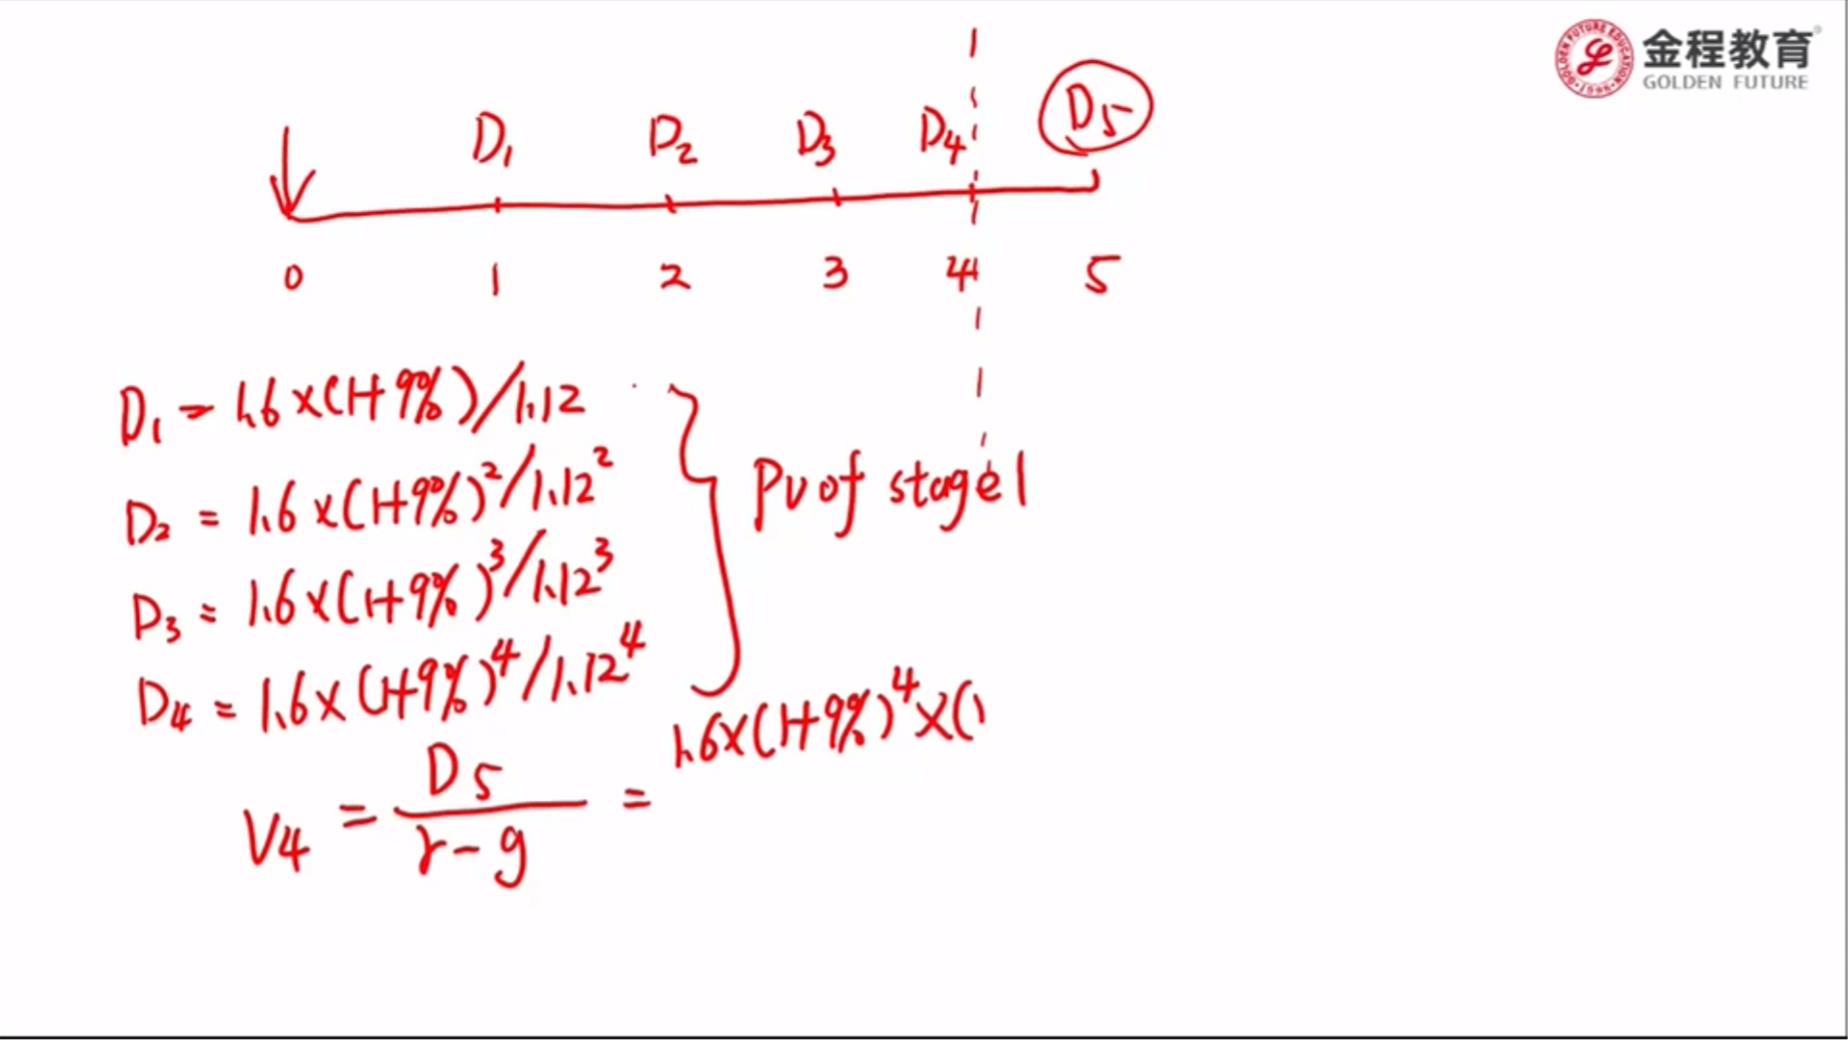 金程教育
GOLDEN FUTURE
D1 D2 D3 D4 D5
0 1 2 3 4 5
D1 = 1.6×(1+9%)/1.12
D2 = 1.6×(1+9%)²/1.12²
D3 = 1.6×(1+9%)³/1.12³
D4 = 1.6×(1+9%)⁴/1.12⁴
PV of stage 1
V4 = D5/(r-g) = 1.6×(1+9%)⁴×(1